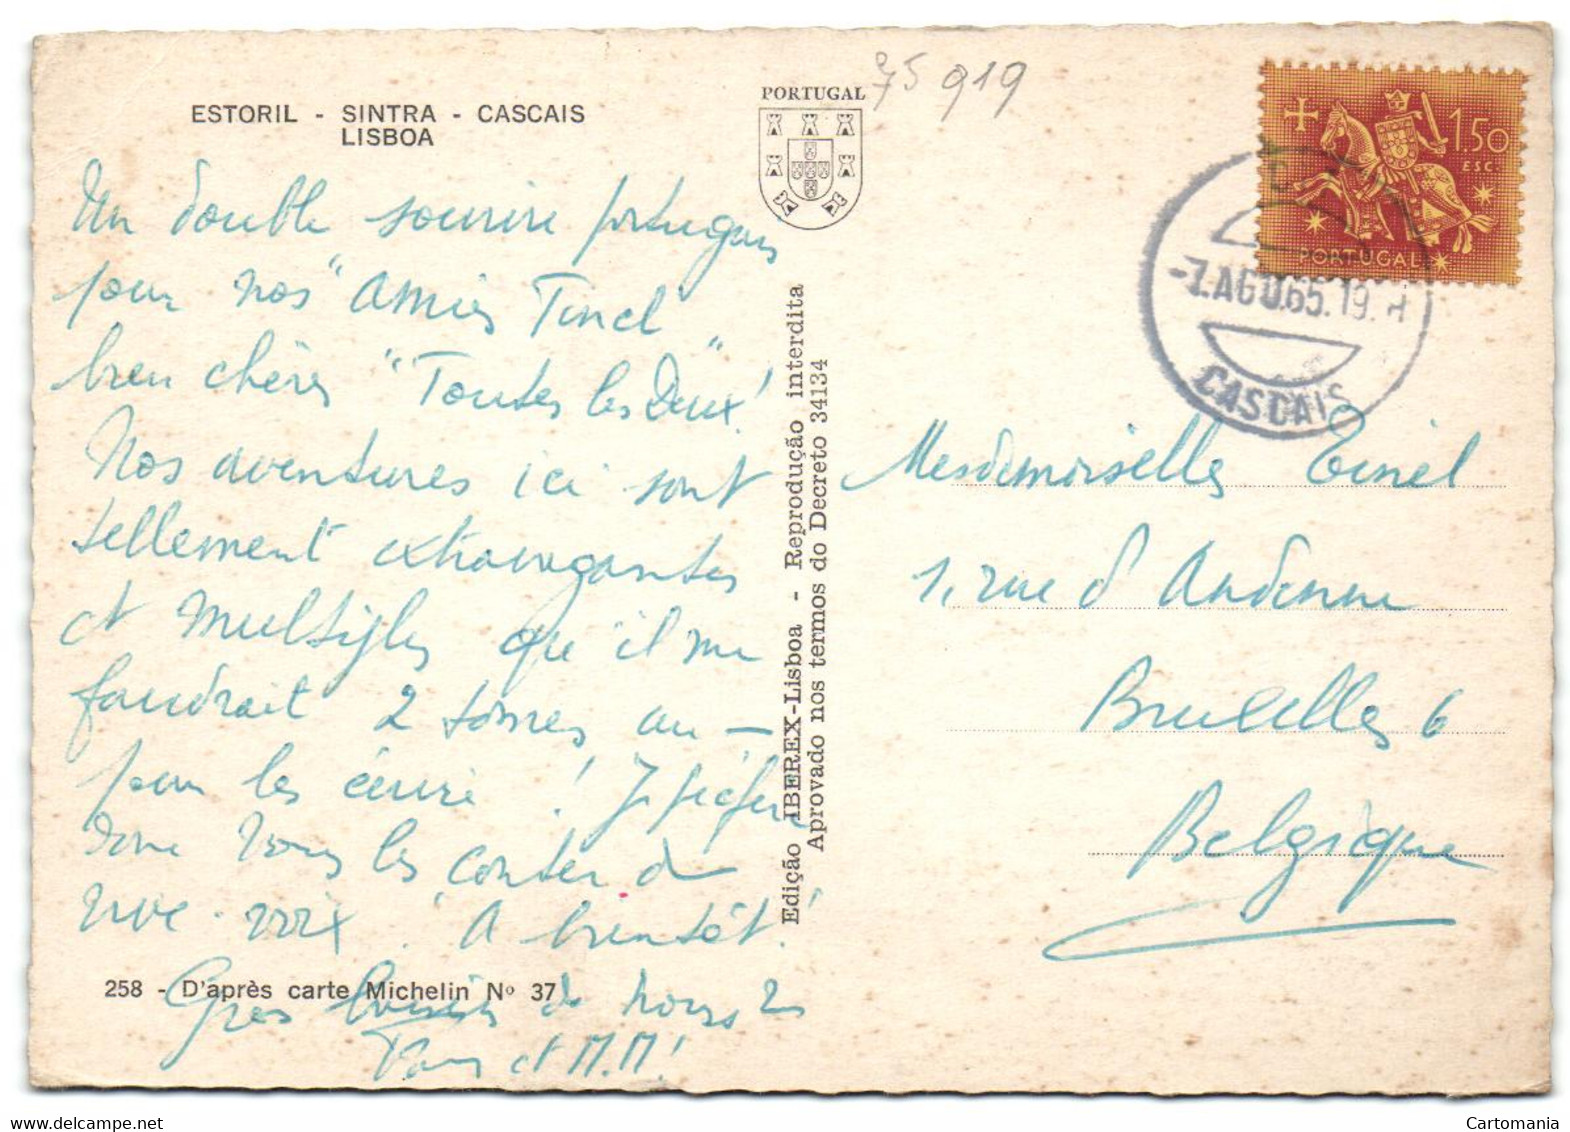 ESTORIL - SINTRA - CASCAIS
LISBOA
PORTUGAL
75 919
1.50
ESC.
PORTUGAL
-7.AGO.65.19.H
CASCAIS
Un double sourire portugais
pour nos "Amies Tinel"
bien chères "Toutes les Deux"!
Nos aventures ici sont
tellement extravagantes
et multiples que il me
faudrait 2 tomes au -
pour les écrire ! Je préfère
donc vous les conter de
vive voix. A bientôt!
Gros baisers de nous 2
et M.M!
258 - D'après carte Michelin Nº 37
Edição IBEREX-Lisboa - Reprodução interdita
Aprovado nos termos do Decreto 34134
Mesdemoiselles Tinel
1, rue d'Andenne
Bruxelles 6
Belgique
Cartomania